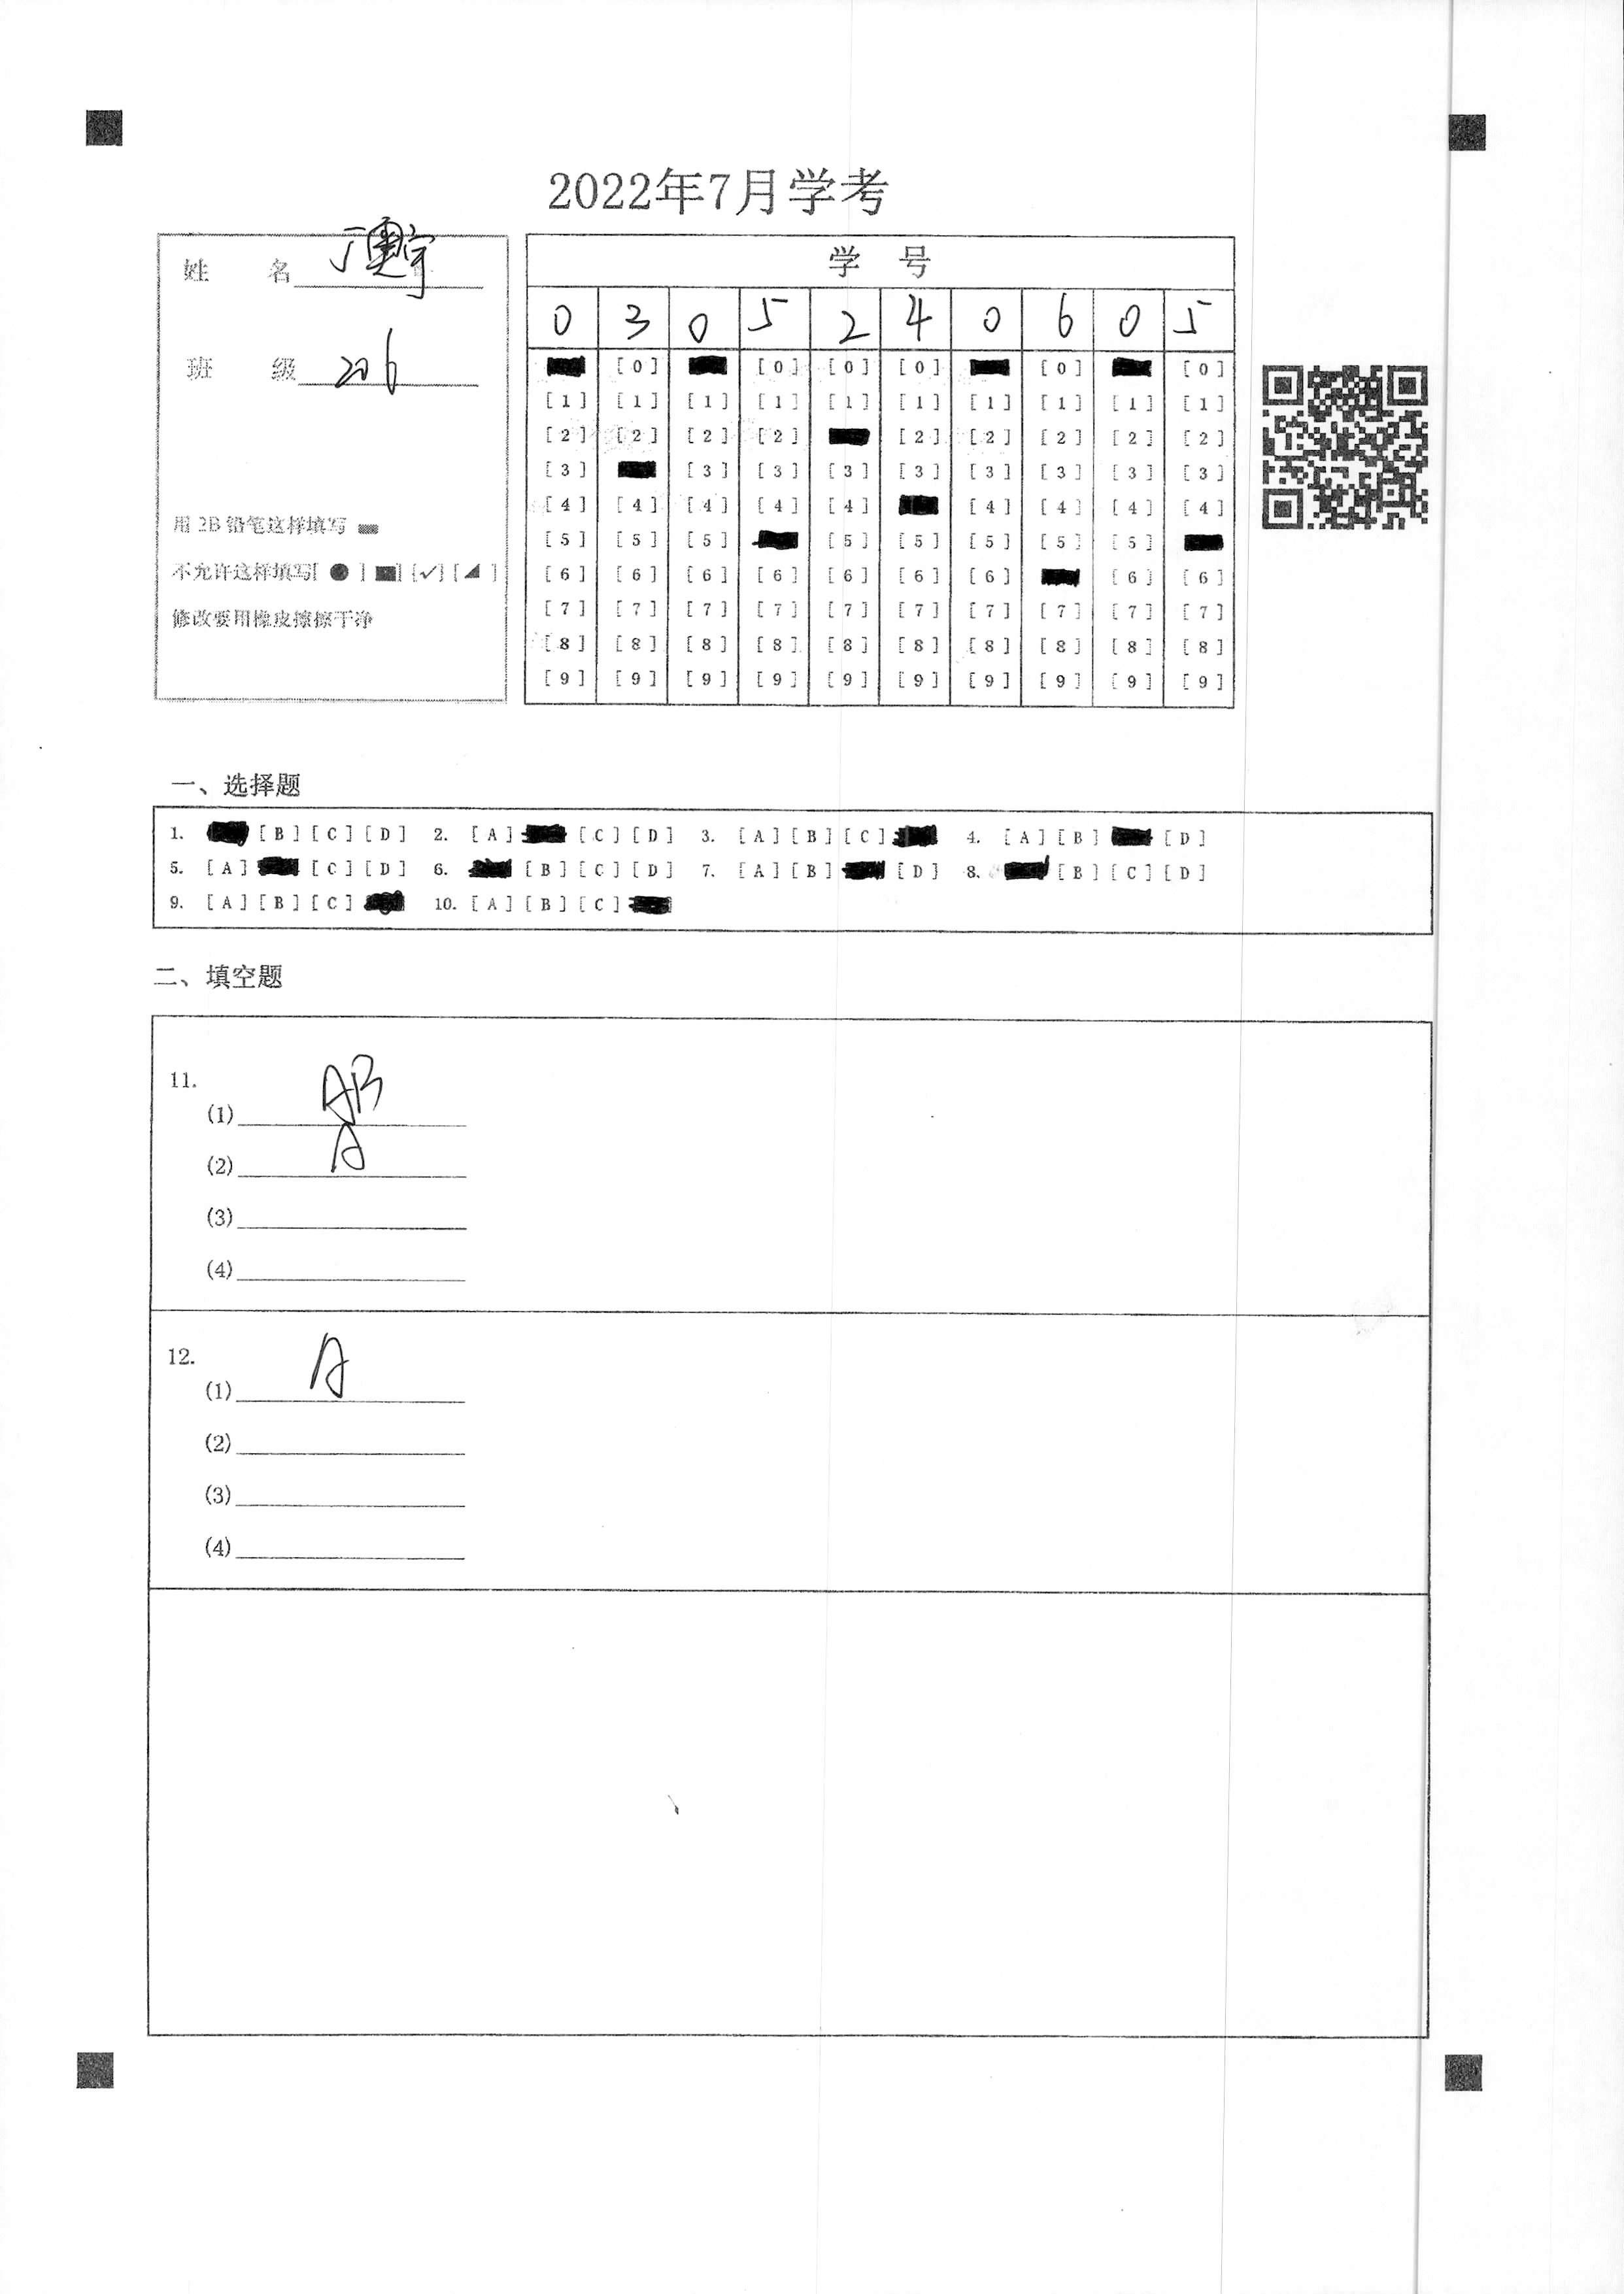 2022年7月学考
姓 名 丁奥宇
班 级 206
用 2B 铅笔这样填写
不允许这样填写[ ● ] [■] [✓] [◢ ]
修改要用橡皮擦擦干净
学 号
0 3 0 5 2 4 0 6 0 5
[0] [0] [0] [0] [0] [0]
[1] [1] [1] [1] [1] [1] [1] [1] [1] [1]
[2] [2] [2] [2] [2] [2] [2] [2] [2]
[3] [3] [3] [3] [3] [3] [3] [3] [3]
[4] [4] [4] [4] [4] [4] [4] [4] [4]
[5] [5] [5] [5] [5] [5] [5] [5]
[6] [6] [6] [6] [6] [6] [6] [6] [6]
[7] [7] [7] [7] [7] [7] [7] [7] [7] [7]
[8] [8] [8] [8] [8] [8] [8] [8] [8] [8]
[9] [9] [9] [9] [9] [9] [9] [9] [9] [9]
一、选择题
1. [B] [C] [D] 2. [A] [C] [D] 3. [A] [B] [C] 4. [A] [B] [D]
5. [A] [C] [D] 6. [B] [C] [D] 7. [A] [B] [D] 8. [B] [C] [D]
9. [A] [B] [C] 10. [A] [B] [C]
二、填空题
11.
(1) AB
(2) A
(3)
(4)
12.
(1) A
(2)
(3)
(4)